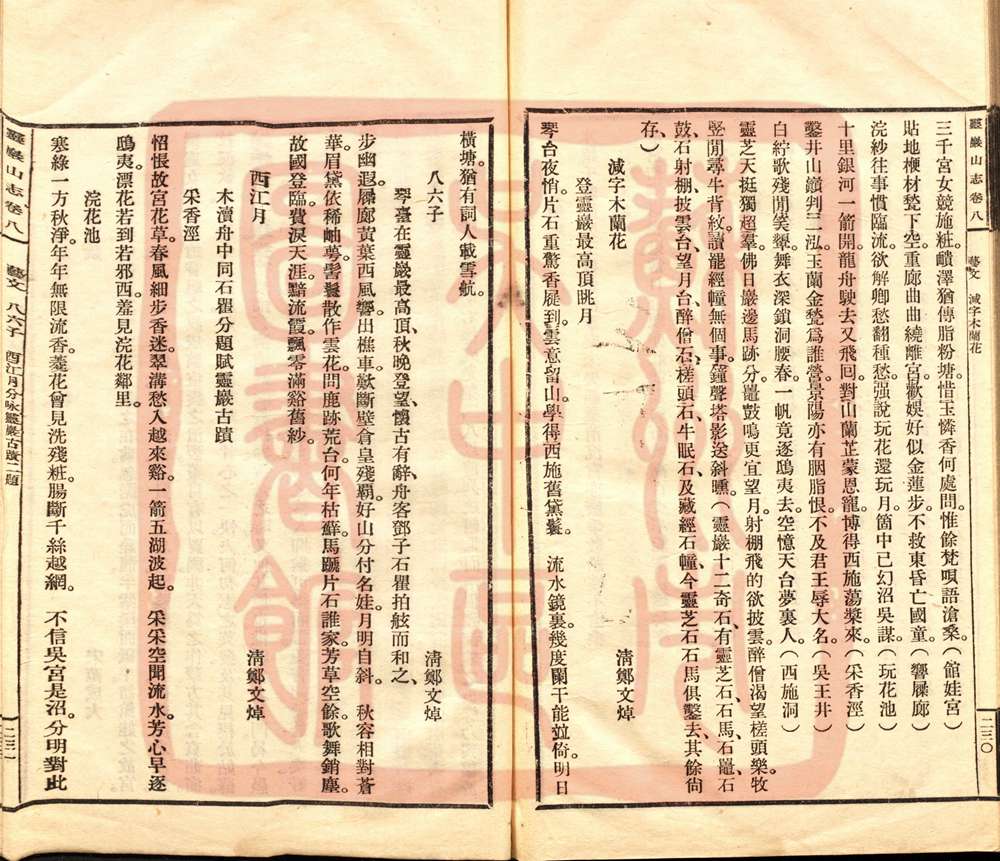 靈巖山志卷八　藝文　減字木蘭花　二三〇
三千宮女競施粧。嶹澤猶傳脂粉塘。惜玉憐香何處問。惟餘梵唄語滄桑。（館娃宮）
貼地梗材甃下空。重廊曲曲繞離宮。歡娛好似金蓮步。不救東昏亡國童。（響屧廊）
浣紗往事慣臨流。欲解卿愁翻種愁。強說玩花還玩月。箇中已幻沼吳謀。（玩花池）
十里銀河一箭開。龍舟駛去又飛回。對山蘭芷蒙恩寵。博得西施蕩槳來。（采香涇）
鑿井山巔判二泓。玉蘭金甃爲誰營。景陽亦有胭脂恨。不及君王辱大名。（吳王井）
白紵歌殘閒笑顰。舞衣深鎖洞腰春。一帆竟逐鴟夷去。空憶天台夢裏人。（西施洞）
靈芝天挺獨超羣。佛日巖邊馬跡分。鼉鼓鳴更宜望月。射棚飛的欲披雲。醉僧渴望槎頭樂。牧
竪閒尋牛背紋。讀罷經幢無個事。鐘聲塔影送斜曛。（靈巖十二奇石、有靈芝石、石馬、石鼉、石
鼓、石射棚、披雲台、望月台、醉僧石、槎頭石、牛眠石、及藏經石幢、今靈芝石石馬俱鑿去、其餘尙
存、）
減字木蘭花　清鄭文焯
登靈巖最高頂眺月
琴台夜悄。片石重驚香屧到。雲意留山。學得西施舊黛鬟。　流水鏡裏。幾度闌干能竝倚。明日
橫塘。猶有詞人載雪航。
八六子　清鄭文焯
琴臺在靈巖最高頂、秋晚登望、懷古有辭、舟客鄧子石瞿拍舷而和之、
步幽遐。屧廊黃葉西風。響出樵車。歎斷壁倉皇殘霸。好山分付名娃。月明自斜。　秋容相對蒼
華。眉黛依稀岫萼。髻鬟散作雲花。問鹿跡荒台。何年枯蘚。馬躧片石誰家。芳草空餘。歌舞銷塵。
故國登臨。費淚天涯。黯流霞。飄零滿谿舊紗。
西江月　清鄭文焯
木瀆舟中同石瞿分題賦靈巖古蹟
采香涇
怊悵故宮花草。春風細步香迷。翠溝愁入越來谿。一箭五湖波起。　采采空聞流水。芳心早逐
鴟夷。漂花若到若邪西。羞見浣花鄰里。
浣花池
寒綠一方秋淨。年年無限流香。菱花曾見洗殘粧。腸斷千絲越網。　不信吳宮是沼。分明對此
靈巖山志卷八　藝文　八六子　西江月分咏靈巖古蹟二題　二三一